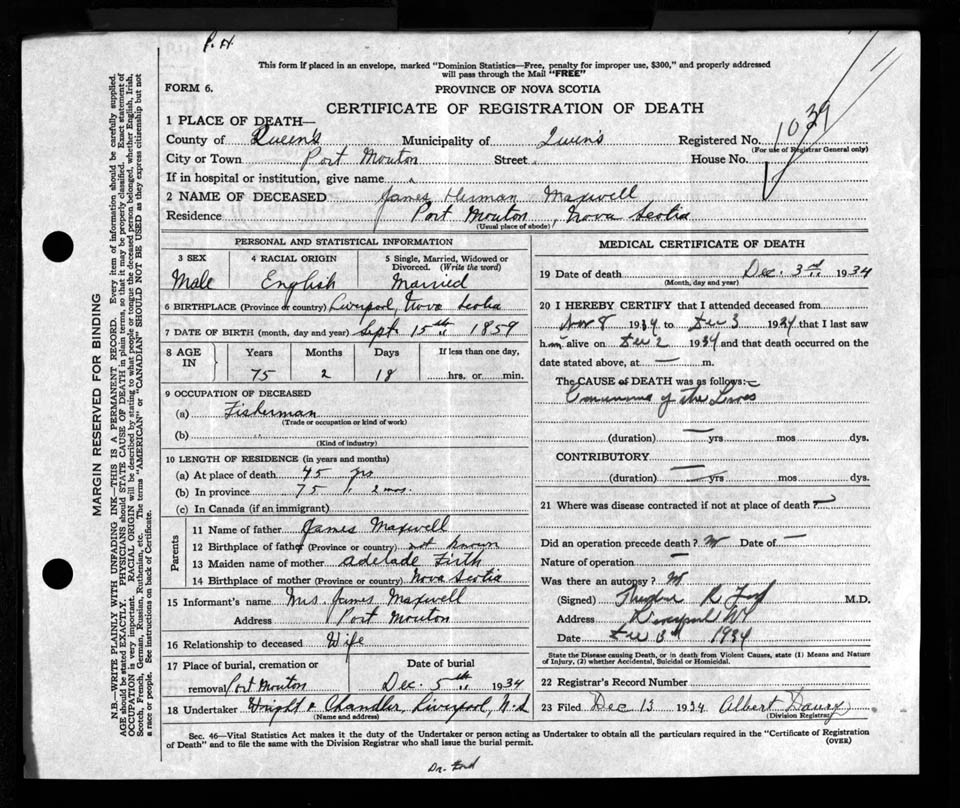 P. H.
This form if placed in an envelope, marked "Dominion Statistics—Free, penalty for improper use, $300," and properly addressed
will pass through the Mail "FREE"
FORM 6.
PROVINCE OF NOVA SCOTIA
CERTIFICATE OF REGISTRATION OF DEATH
1 PLACE OF DEATH—
County of Queen's Municipality of Queens Registered No. 1039
(For use of Registrar General only)
City or Town Port Mouton Street House No.
If in hospital or institution, give name
2 NAME OF DECEASED James Herman Maxwell
Residence Port Mouton Nova Scotia
(Usual place of abode)
PERSONAL AND STATISTICAL INFORMATION
3 SEX 4 RACIAL ORIGIN 5 Single, Married, Widowed or Divorced. (Write the word)
Male English Married
6 BIRTHPLACE (Province or country) Liverpool, Nova Scotia
7 DATE OF BIRTH (month, day and year) Sept 15th 1859
8 AGE IN Years Months Days If less than one day,
75 2 18 hrs. or min.
9 OCCUPATION OF DECEASED
(a) Fisherman
(Trade or occupation or kind of work)
(b)
(Kind of industry)
10 LENGTH OF RESIDENCE (in years and months)
(a) At place of death 45 yrs
(b) In province 75 2 mos.
(c) In Canada (if an immigrant)
Parents
11 Name of father James Maxwell
12 Birthplace of father (Province or country) not known
13 Maiden name of mother Adelade Firth
14 Birthplace of mother (Province or country) Nova Scotia
15 Informant's name Mrs James Maxwell
Address Port Mouton
16 Relationship to deceased Wife
17 Place of burial, cremation or Date of burial
removal Port Mouton Dec. 5th 1934
18 Undertaker Wright & Chandler, Liverpool, N.S.
(Name and address)
MEDICAL CERTIFICATE OF DEATH
19 Date of death Dec. 3rd 1934
(Month, day and year)
20 I HEREBY CERTIFY that I attended deceased from
Nov 8 1934 to Dec 3 1934 that I last saw
him alive on Dec 2 1934 and that death occurred on the
date stated above, at — m.
The CAUSE of DEATH was as follows:
of the
(duration) — yrs mos dys.
CONTRIBUTORY —
(duration) — yrs mos dys.
21 Where was disease contracted if not at place of death?
Did an operation precede death? No Date of —
Nature of operation —
Was there an autopsy? No
(Signed) Theodore R Ford M.D.
Address Liverpool NS
Date Dec 13th 1934
State the Disease causing Death, or in death from Violent Causes, state (1) Means and Nature
of Injury, (2) whether Accidental, Suicidal or Homicidal.
22 Registrar's Record Number
23 Filed Dec 13 1934 Albert
(Division Registrar)
Sec. 46—Vital Statistics Act makes it the duty of the Undertaker or person acting as Undertaker to obtain all the particulars required in the "Certificate of Registration
of Death" and to file the same with the Division Registrar who shall issue the burial permit.
(OVER)
Dr. Ford
MARGIN RESERVED FOR BINDING
N.B.—WRITE PLAINLY WITH UNFADING INK—THIS IS A PERMANENT RECORD. Every item of information should be carefully supplied.
AGE should be stated EXACTLY. PHYSICIANS should STATE CAUSE OF DEATH in plain terms, so that it may be properly classified. Exact statement of
OCCUPATION is very important. RACIAL ORIGIN will be described by stating to what people or tongue the deceased person belonged, whether English, Irish,
Scotch, French, German, Russian, Ruthenian, etc. The terms "AMERICAN" or "CANADIAN" SHOULD NOT BE USED as they express citizenship but not
a race or people. See instructions on back of Certificate.